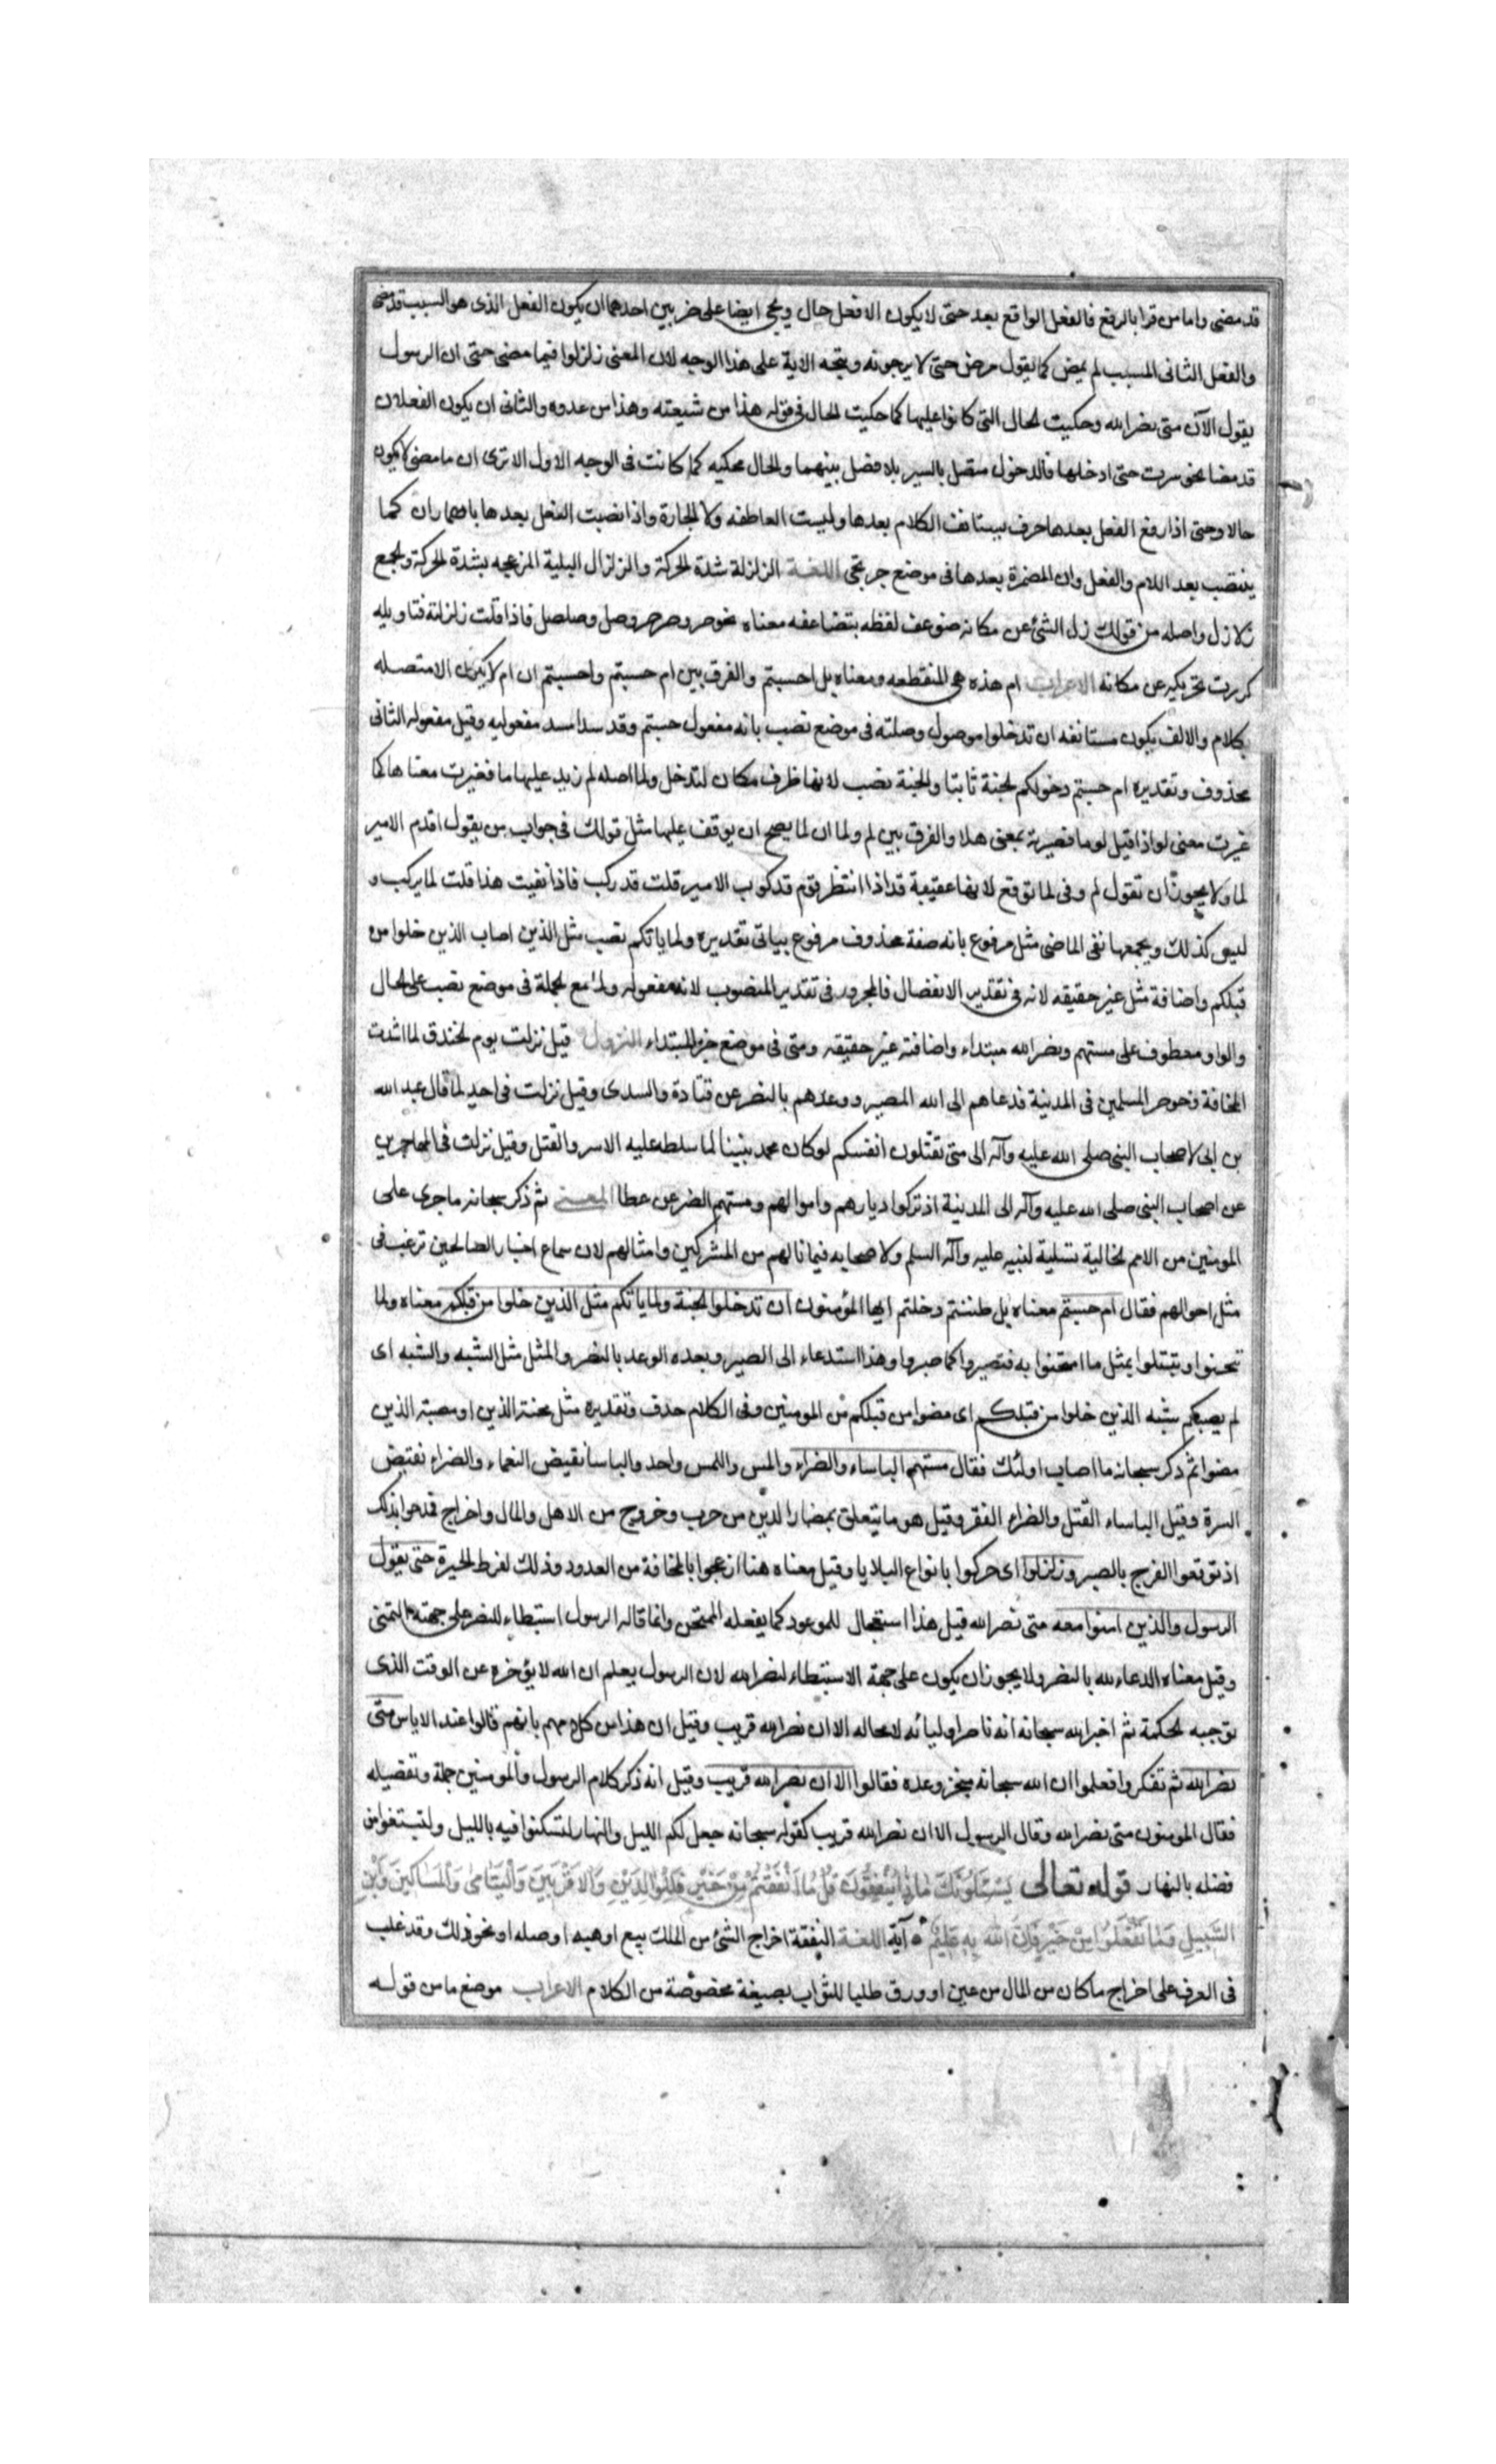 قد مضى واما من قرا بالرفع فالفعل الواقع بعد حتى لا يكون الا فعل حال ويجى ايضا على ضربين احدهما ان يكون الفعل الذى هو السبب قد مضى
والفعل الثانى المسبب لم يمض كما تقول مرض حتى لا يرجونه ويتجه الاية على هذا الوجه لان المعنى زلزلوا فيما مضى حتى ان الرسول
يقول الآن متى نصر الله وحكيت الحال التى كانوا عليها كما حكيت الحال فى قوله هذا من شيعته وهذا من عدوه والثانى ان يكون الفعلان
قد مضيا نحو سرت حتى ادخلها فالدخول متصل بالسير بلا فصل بينهما والحال محكيه كما كانت فى الوجه الاول الا ترى ان ما مضى لا يكون
حالا وحتى اذا رفع الفعل بعدها حرف يستانف الكلام بعدها وليست العاطفه ولا الجارة واذا نصبت الفعل بعدها باضمار ان كما
ينتصب بعد اللام والفعل وان المضمرة بعدها فى موضع جر بحتى اللغة الزلزلة شدة الحركة والزلزال البلية المزعجه بشدة الحركة والجمع
زلازل واصله من قولك زل الشئ عن مكانه ضوعف لفظه بتضاعفه معناه نحو صر وصرصر وصل وصلصل فاذا قلت زلزلته فتاويله
كررت تحريكه عن مكانه الاعراب ام هذه هى المنقطعه ومعناه بل احسبتم والفرق بين ام حسبتم واحسبتم ان ام لا يكون الا متصله
بكلام والالف يكون مستانفه ان تدخلوا موصول وصلته فى موضع نصب بانه مفعول حسبتم وقد سدا مسد مفعوليه وقيل مفعوله الثانى
محذوف وتقديره ام حسبتم دخولكم الجنة ثابتا والجنة نصب لانها ظرف مكان لتدخل ولما اصله لم زيد عليها ما فغيرت معناها كما
غيرت معنى لو اذا قيل لوما فصيرته بمعنى هلا والفرق بين لم ولما ان لما يصح ان يوقف عليها مثل قولك فى جواب من يقول اقدم الامير
لما ولا يجوز ان تقول لم وفى لما توقع لانها عقيبة قد اذا انتظر قوم قد ركوب الامير قلت قد ركب فاذا نفيت هذا قلت لما يركب و
ليس كذلك ويجمعها نفى الماضى مثل مرفوع بانه صفة محذوف مرفوع بياتى تقديره ولما ياتكم نصب مثل الذين اصاب الذين خلوا من
قبلكم واضافة مثل غير حقيقه لانه فى تقدير الانفصال فالمجرور فى تقدير المنصوب لانه مفعوله ولما مع الجملة فى موضع نصب على الحال
والواو معطوف على مستهم ونصر الله مبتداء واضافته غير حقيقه ومتى فى موضع خبر المبتداء النزول قيل نزلت يوم الخندق لما اشتدت
المخافة وحوصر المسلمين فى المدينة فدعاهم الى الله المصير ووعدهم بالنصر عن قتادة والسدى وقيل نزلت فى احد لما قال عبد الله
بن ابى لاصحاب النبى صلى الله عليه وآله الى متى تقتلون انفسكم لو كان محمد بنبينا لما سلط عليه الاسر والقتل وقيل نزلت فى المهاجرين
عن اصحاب النبى صلى الله عليه وآله الى المدينة اذ تركوا ديارهم واموالهم ومستهم الضر عن عطا المعنى ثم ذكر سبحانه ما جرى على
المومنين من الامم الخالية تسلية لنبيه عليه وآله السلم ولاصحابه فيما نالهم من المشركين وامثالهم لان سماع اخبار الصالحين ترغب فى
مثل احوالهم فقال ام حسبتم معناه بل ظننتم دخلتم ايها المؤمنون ان تدخلوا الجنة ولما ياتكم مثل الذين خلوا من قبلكم معناه ولما
تمحنوا وتبتلوا بمثل ما امتحنوا به فتصبروا كما صبروا وهذا استدعاء الى الصبر وبعده الوعد بالنصر والمثل مثل الشبه والشبه اى
لم يصبكم شبه الذين خلوا من قبلكم اى مضوا من قبلكم من المومنين وفى الكلام حذف وتقديره مثل محنة الذين او مصيبة الذين
مضوا ثم ذكر سبحانه ما اصاب اولئك فقال مستهم الباساء والضراء والمس واللمس واحد والباسا نقيض النعماء والضراء نقيض
السرة وقيل الباساء القتل والضراء الفقر وقيل هو ما يتعلق بمضار الدين من حرب وخروج من الاهل والمال واخراج فمدحوا بذلك
اذ توقعوا الفرج بالصبر وزلزلوا اى حركوا بانواع البلايا وقيل معناه هنا ازعجوا بالمخافة من العدو وذلك لفرط الحيرة حتى يقول
الرسول والذين امنوا معه متى نصر الله قيل هذا استعجال للموعود كما يفعله الممتحن وانما قاله الرسول استبطاء للنصر على جهة التمنى
وقيل معناه الدعاء لله بالنصر ولا يجوز ان يكون على جهة الاستبطاء لنصر الله لان الرسول يعلم ان الله لا يؤخره عن الوقت الذى
توجبه الحكمة ثم اخبر الله سبحانه انه ناصر اوليائه لا محاله الا ان نصر الله قريب وقيل ان هذا من كلامهم بانهم قالوا عند الاياس متى
نصر الله ثم تفكروا فعلموا ان الله سبحانه منجز وعده فقالوا الا ان نصر الله قريب وقيل انه ذكر كلام الرسول والمومنين جملة وتفصيله
فقال المومنون متى نصر الله وقال الرسول الا ان نصر الله قريب كقوله سبحانه جعل لكم الليل والنهار لتسكنوا فيه بالليل ولتبتغوا من
فضله بالنهار قوله تعالى يَسْئَلُونَكَ مَاذَا يُنْفِقُونَ قُلْ مَا اَنْفَقْتُمْ مِنْ خَيْرٍ فَلِلْوَالِدَيْنِ وَالاَقْرَبِينَ وَالْيَتَامَى وَالْمَسَاكِينَ وَابْنِ
السَّبِيلِ وَمَا تَفْعَلُوا مِنْ خَيْرٍ فَاِنَّ اللهَ بِهِ عَلِيمٌ ٥ آية اللغة النفقة اخراج الشئ من الملك ببيع او هبه او صله او نحو ذلك وقد غلب
فى العرف على اخراج ما كان من المال من عين او ورق طلبا للثواب بصيغة مخصوصة من الكلام الاعراب موضع ما من قوله